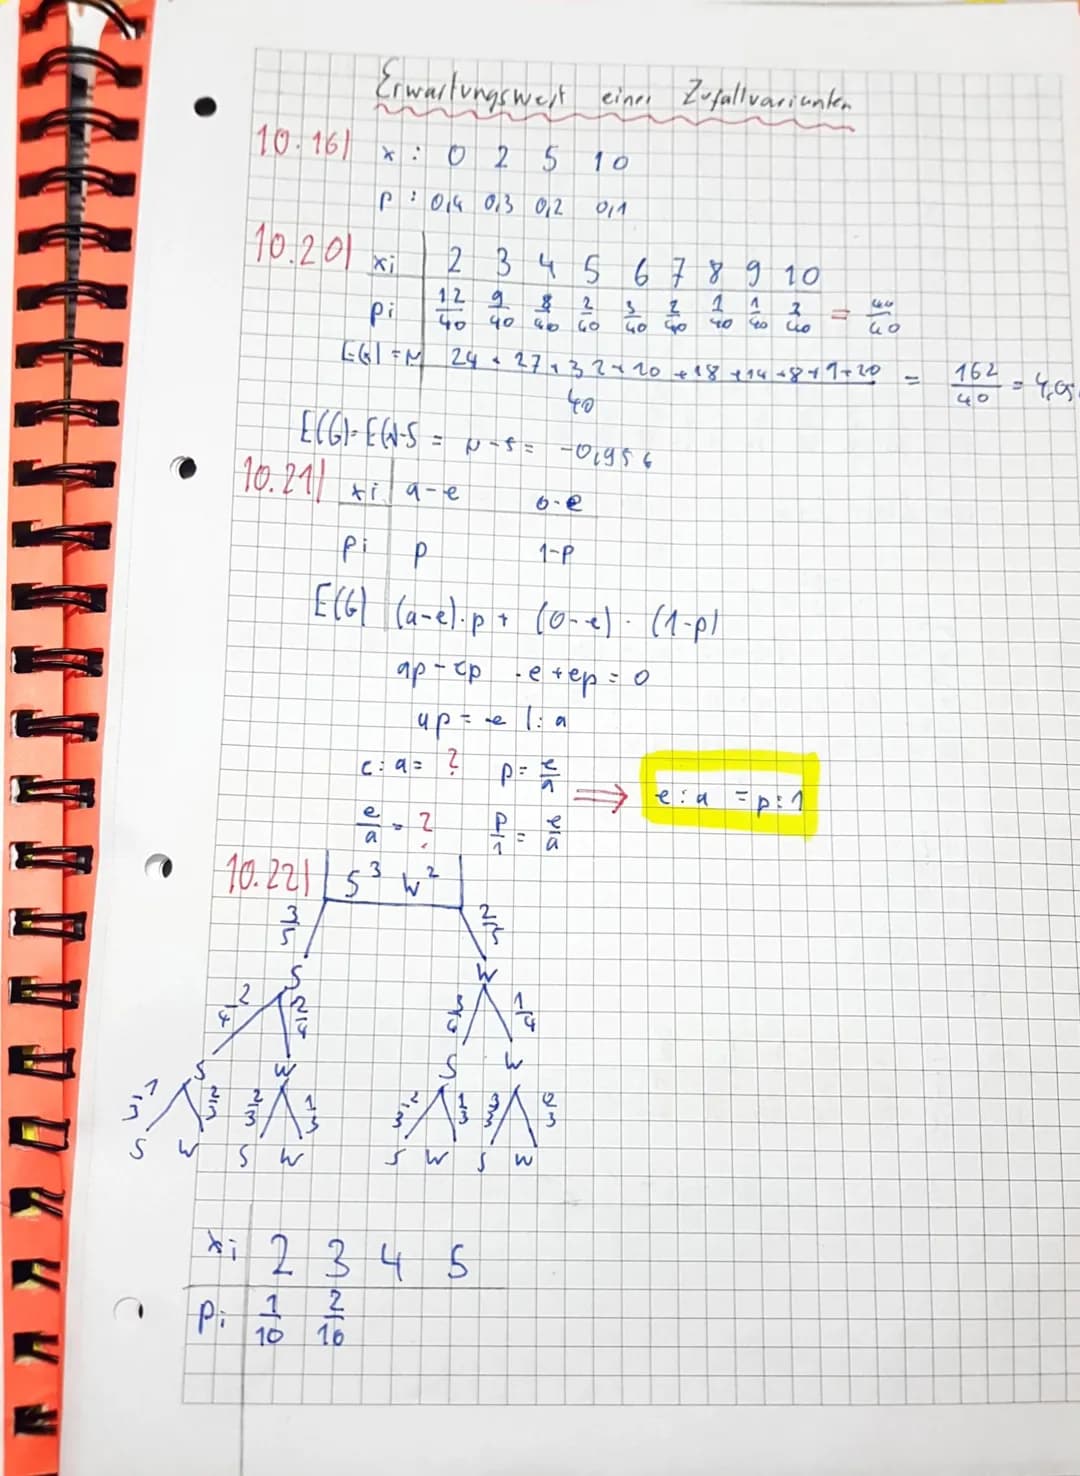 Erwartungswert einer Zufallvarianten
10.16| x : 0 2 5 10
p : 0,4 0,3 0,2 0,1
10.20| xi 2 3 4 5 6 7 8 9 10
pi 12/40 9/40 8/40 2/40 3/40 2/40 1/40 1/40 2/40 = 40/40
E(G) = μ 24 + 27 + 32 + 10 + 18 + 14 + 8 + 9 + 20 / 40 = 162/40 = 4,05
E(G) = E(x)-5 = μ - 5 = -0,95 €
10.21| xi a-e 0-e
pi p 1-p
E(G) (a-e)·p + (0-e) · (1-p)
ap - ep - e + ep = 0
ap = e |: a
e : a = ? p = e/a
⇒ e : a = p : 1
e/a = ? p/1 = e/a
10.22| S³ W²
3/5 2/5
S W
2/4 2/4 3/4 1/4
S W S W
1/3 2/3 2/3 1/3 2/3 1/3 3/3 0/3
S W S W S W S W
xi 2 3 4 5
pi 1/10 2/10